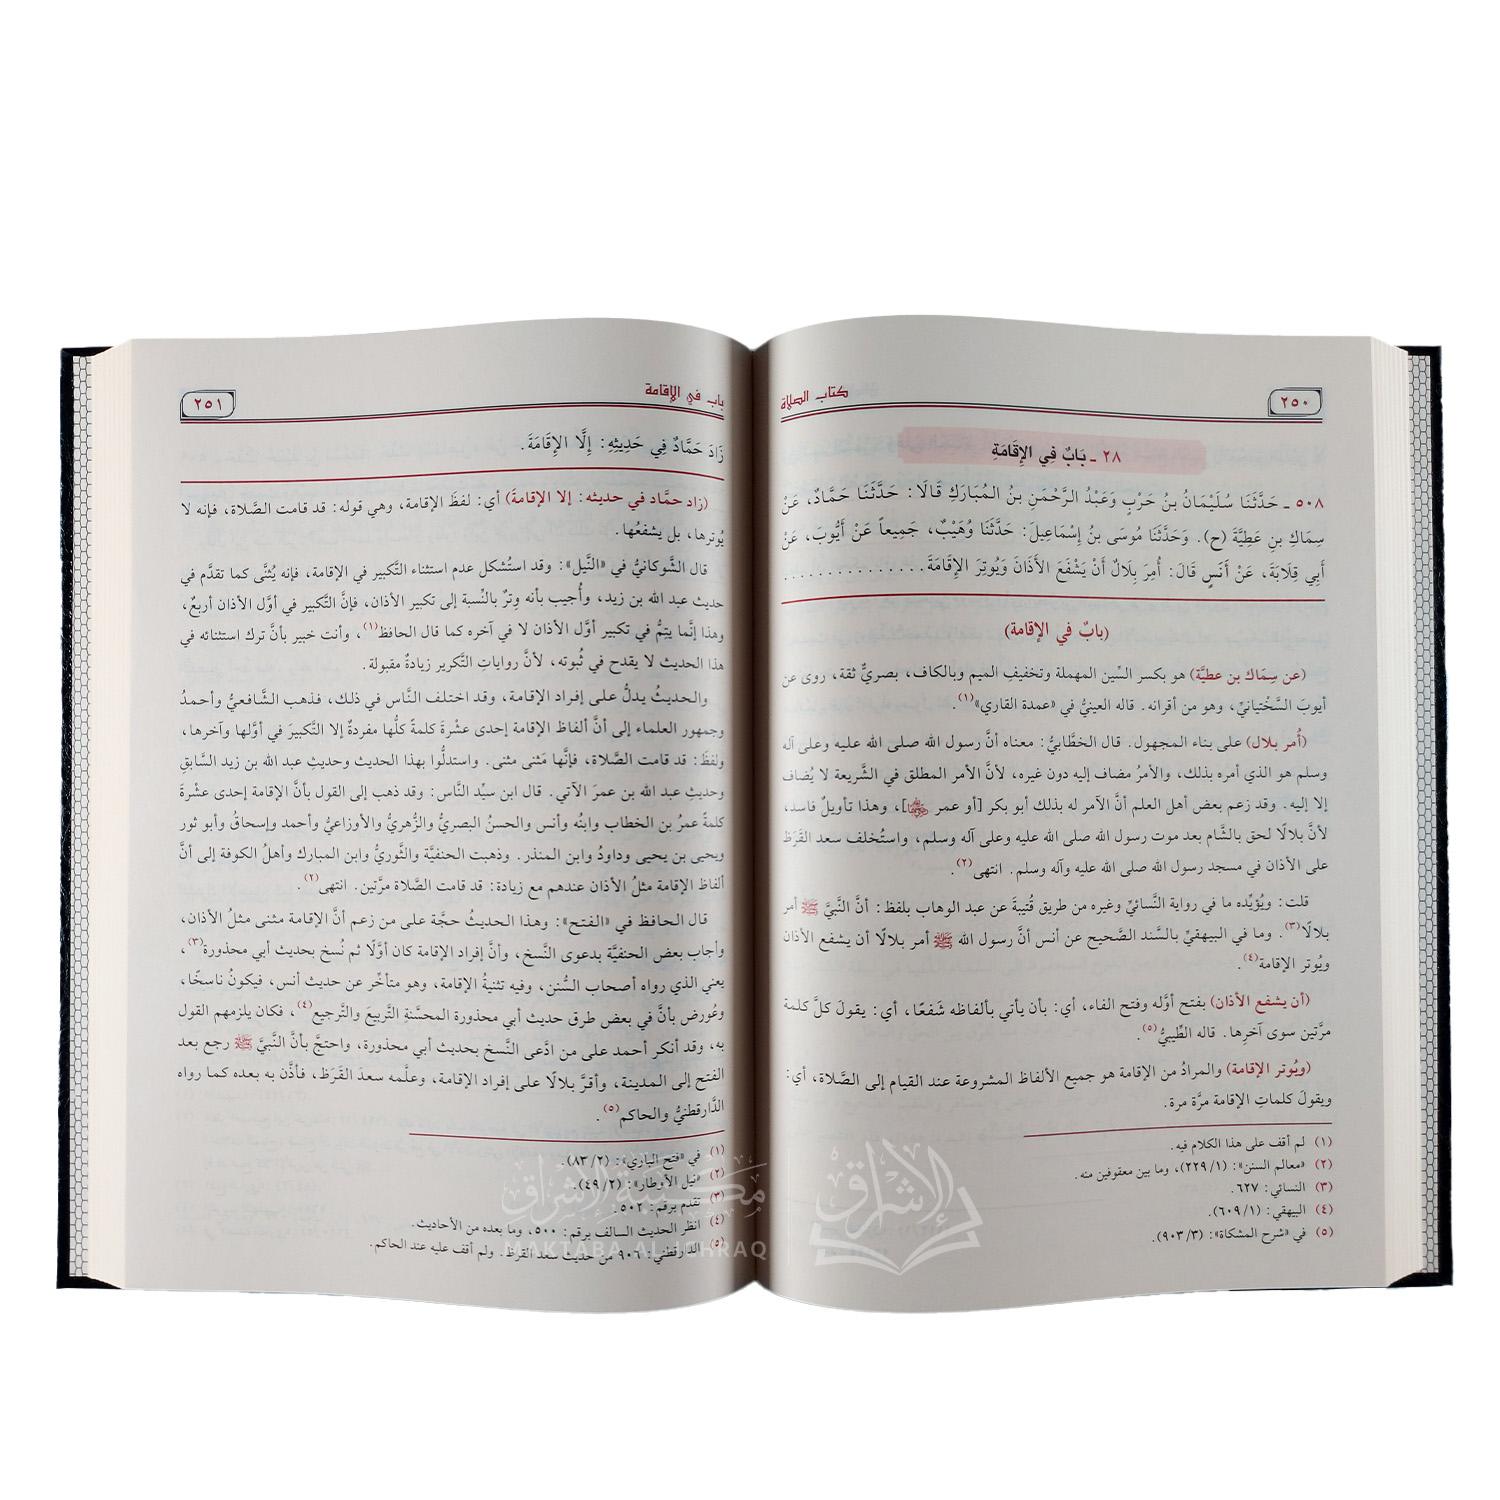 ٢٥٠
كتاب الصلاة
٢٨ ـ بَابٌ فِي الإِقَامَةِ
٥٠٨ ـ حَدَّثَنَا سُلَيْمَانُ بنُ حَرْبٍ وَعَبْدُ الرَّحْمَنِ بنُ المُبَارَكِ قَالَا: حَدَّثَنَا حَمَّادٌ، عَنْ
سِمَاكِ بنِ عَطِيَّةَ (ح). وَحَدَّثَنَا مُوسَى بنُ إِسْمَاعِيلَ: حَدَّثَنَا وُهَيْبٌ، جَمِيعاً عَنْ أَيُّوبَ، عَنْ
أَبِي قِلَابَةَ، عَنْ أَنَسٍ قَالَ: أُمِرَ بِلَالٌ أَنْ يَشْفَعَ الأَذَانَ وَيُوتِرَ الإِقَامَةَ...............
(بابٌ في الإقامة)
(عن سِمَاك بن عطيَّة) هو بكسر السِّين المهملة وتخفيفِ الميم وبالكاف، بصريٌّ ثقة، روى عن
أيوبَ السَّخْتيانيِّ، وهو من أقرانه. قاله العينيُّ في «عمدة القاري»(١).
(أُمر بلال) على بناء المجهول. قال الخطَّابيُّ: معناه أنَّ رسول الله صلى الله عليه وعلى آله
وسلم هو الذي أمره بذلك، والأمرُ مضاف إليه دون غيره، لأنَّ الأمر المطلق في الشَّريعة لا يُضاف
إلا إليه. وقد زعم بعض أهل العلم أنَّ الآمر له بذلك أبو بكر [أو عمر ﵄]، وهذا تأويلٌ فاسد،
لأنَّ بلالًا لحق بالشَّام بعد موت رسول الله صلى الله عليه وعلى آله وسلم، واستُخلف سعد القَرَظ
على الأذان في مسجد رسول الله صلى الله عليه وآله وسلم. انتهى(٢).
قلت: ويُؤيِّده ما في رواية النَّسائيِّ وغيره من طريق قُتيبةَ عن عبد الوهاب بلفظ: أنَّ النَّبيَّ ﷺ أمر
بلالًا(٣). وما في البيهقيِّ بالسَّند الصَّحيح عن أنس أنَّ رسول الله ﷺ أمر بلالًا أن يشفع الأذان
ويُوتر الإقامة(٤).
(أن يشفع الأذان) بفتح أوَّله وفتح الفاء، أي: بأن يأتي بألفاظه شَفعًا، أي: يقولَ كلَّ كلمة
مرَّتين سوى آخرِها. قاله الطِّيبيُّ(٥).
(ويُوتر الإقامة) والمرادُ من الإقامة هو جميع الألفاظ المشروعة عند القيام إلى الصَّلاة، أي:
ويقولَ كلماتِ الإقامة مرَّة مرة.
(١) لم أقف على هذا الكلام فيه.
(٢) «معالم السنن»: (١/ ٢٢٩)، وما بين معقوفين منه.
(٣) النسائي: ٦٢٧.
(٤) البيهقي: (١/ ٦٠٩).
(٥) في «شرح المشكاة»: (٣/ ٩٠٣).
باب في الإقامة
٢٥١
زَادَ حَمَّادٌ فِي حَدِيثِهِ: إِلَّا الإِقَامَةَ.
(زاد حمَّاد في حديثه: إلا الإقامةَ) أي: لفظَ الإقامة، وهي قوله: قد قامت الصَّلاة، فإنه لا
يُوترها، بل يشفعُها.
قال الشَّوكانيُّ في «النَّيل»: وقد استُشكل عدم استثناء التَّكبير في الإقامة، فإنه يُثنَّى كما تقدَّم في
حديث عبد الله بن زيد، وأُجيب بأنه وِترٌ بالنِّسبة إلى تكبير الأذان، فإنَّ التَّكبير في أوَّل الأذان أربعٌ،
وهذا إنَّما يتِمُّ في تكبير أوَّل الأذان لا في آخره كما قال الحافظ(١)، وأنت خبير بأنَّ ترك استثنائه في
هذا الحديث لا يقدح في ثُبوته، لأنَّ رواياتِ التَّكرير زيادةٌ مقبولة.
والحديثُ يدلُّ على إفراد الإقامة، وقد اختلف النَّاس في ذلك، فذهب الشَّافعيُّ وأحمدُ
وجمهور العلماء إلى أنَّ ألفاظ الإقامة إحدى عشْرةَ كلمةً كلُّها مفردةٌ إلا التَّكبيرَ في أوَّلها وآخرها،
ولفظَ: قد قامت الصَّلاة، فإنَّها مَثنى مثنى. واستدلُّوا بهذا الحديث وحديثِ عبد الله بن زيد السَّابقِ
وحديثِ عبد الله بن عمرَ الآتي. قال ابن سيِّد النَّاس: وقد ذهب إلى القول بأنَّ الإقامة إحدى عشْرةَ
كلمةً عمرُ بن الخطاب وابنُه وأنس والحسنُ البصريُّ والزُّهريُّ والأوزاعيُّ وأحمد وإسحاقُ وأبو ثور
ويحيى بن يحيى وداودُ وابن المنذر. وذهبت الحنفيَّة والثَّوريُّ وابن المبارك وأهلُ الكوفة إلى أنَّ
ألفاظ الإقامة مثلُ الأذان عندهم مع زيادة: قد قامت الصَّلاة مرَّتين. انتهى(٢).
قال الحافظ في «الفتح»: وهذا الحديثُ حجَّة على من زعم أنَّ الإقامة مثنى مثلُ الأذان،
وأجاب بعض الحنفيَّة بدعوى النَّسخ، وأنَّ إفراد الإقامة كان أوَّلًا ثم نُسخ بحديث أبي محذورة(٣)،
يعني الذي رواه أصحاب السُّنن، وفيه تثنيةُ الإقامة، وهو متأخِّر عن حديث أنس، فيكونُ ناسخًا،
وعُورض بأنَّ في بعض طرق حديث أبي محذورة المحسَّنةِ التَّربيعَ والتَّرجيع(٤)، فكان يلزمهم القول
به، وقد أنكر أحمد على من ادَّعى النَّسخ بحديث أبي محذورة، واحتجَّ بأنَّ النَّبيَّ ﷺ رجع بعد
الفتح إلى المدينة، وأقرَّ بلالًا على إفراد الإقامة، وعلَّمه سعدَ القَرَظ، فأذَّن به بعده كما رواه
الدَّارقطنيُّ والحاكم(٥).
(١) في «فتح الباري»: (٢/ ٨٣).
(٢) «نيل الأوطار»: (٢/ ٤٩).
(٣) تقدم برقم: ٥٠٢.
(٤) انظر الحديث السالف برقم: ٥٠٠، وما بعده من الأحاديث.
(٥) الدارقطني: ٩٠٦ من حديث سعد القرظ. ولم أقف عليه عند الحاكم.
مكتبة الإشراق
MAKTABA AL ISHRAQ
الإشراق